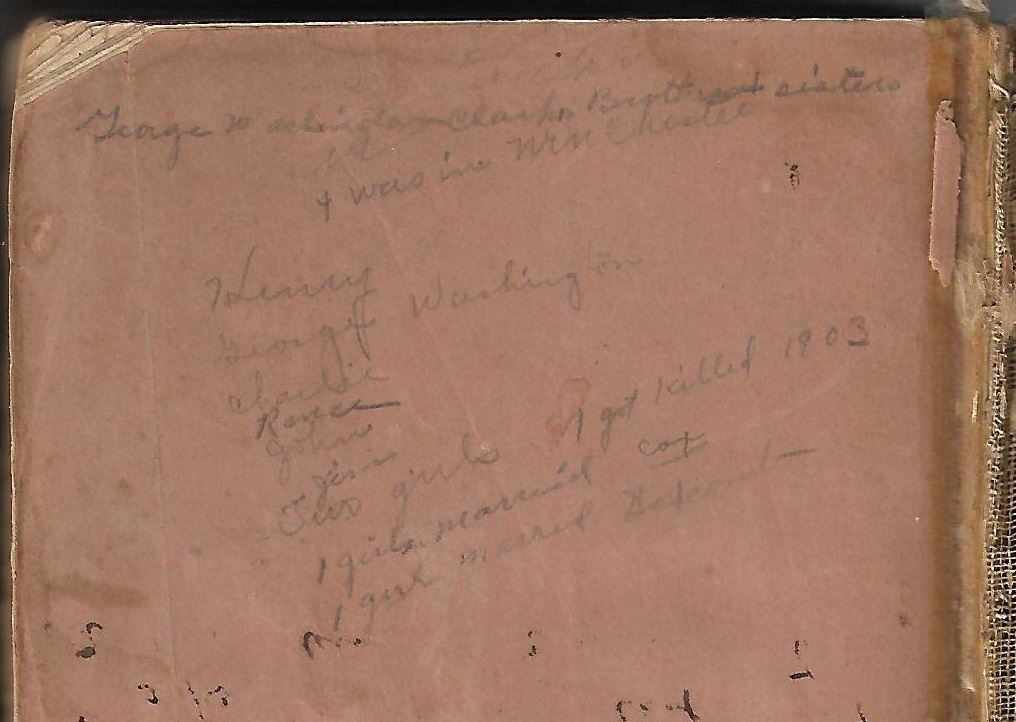 George Washington Brothers sisters
& was in
Henry
George Washington
Charlie
Rance
John
Jim
Two girls 1 got killed 1903
1 girl married cox
1 girl married